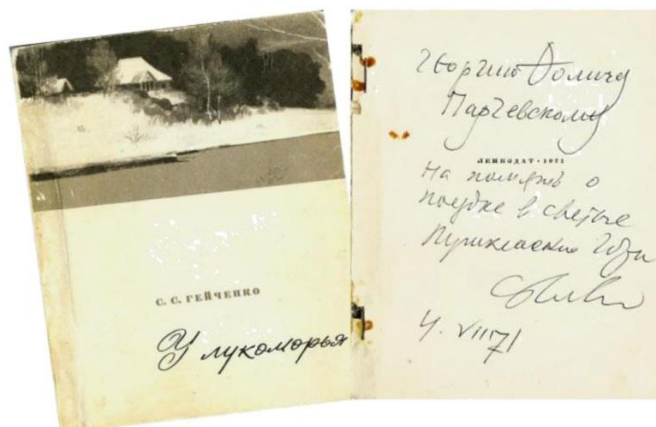 С. С. ГЕЙЧЕНКО
У лукоморья
Георгию
Парчевскому
ЛЕНИЗДАТ • 1971
На память о
поездке в святые
Пушкинские
4. VIII 71